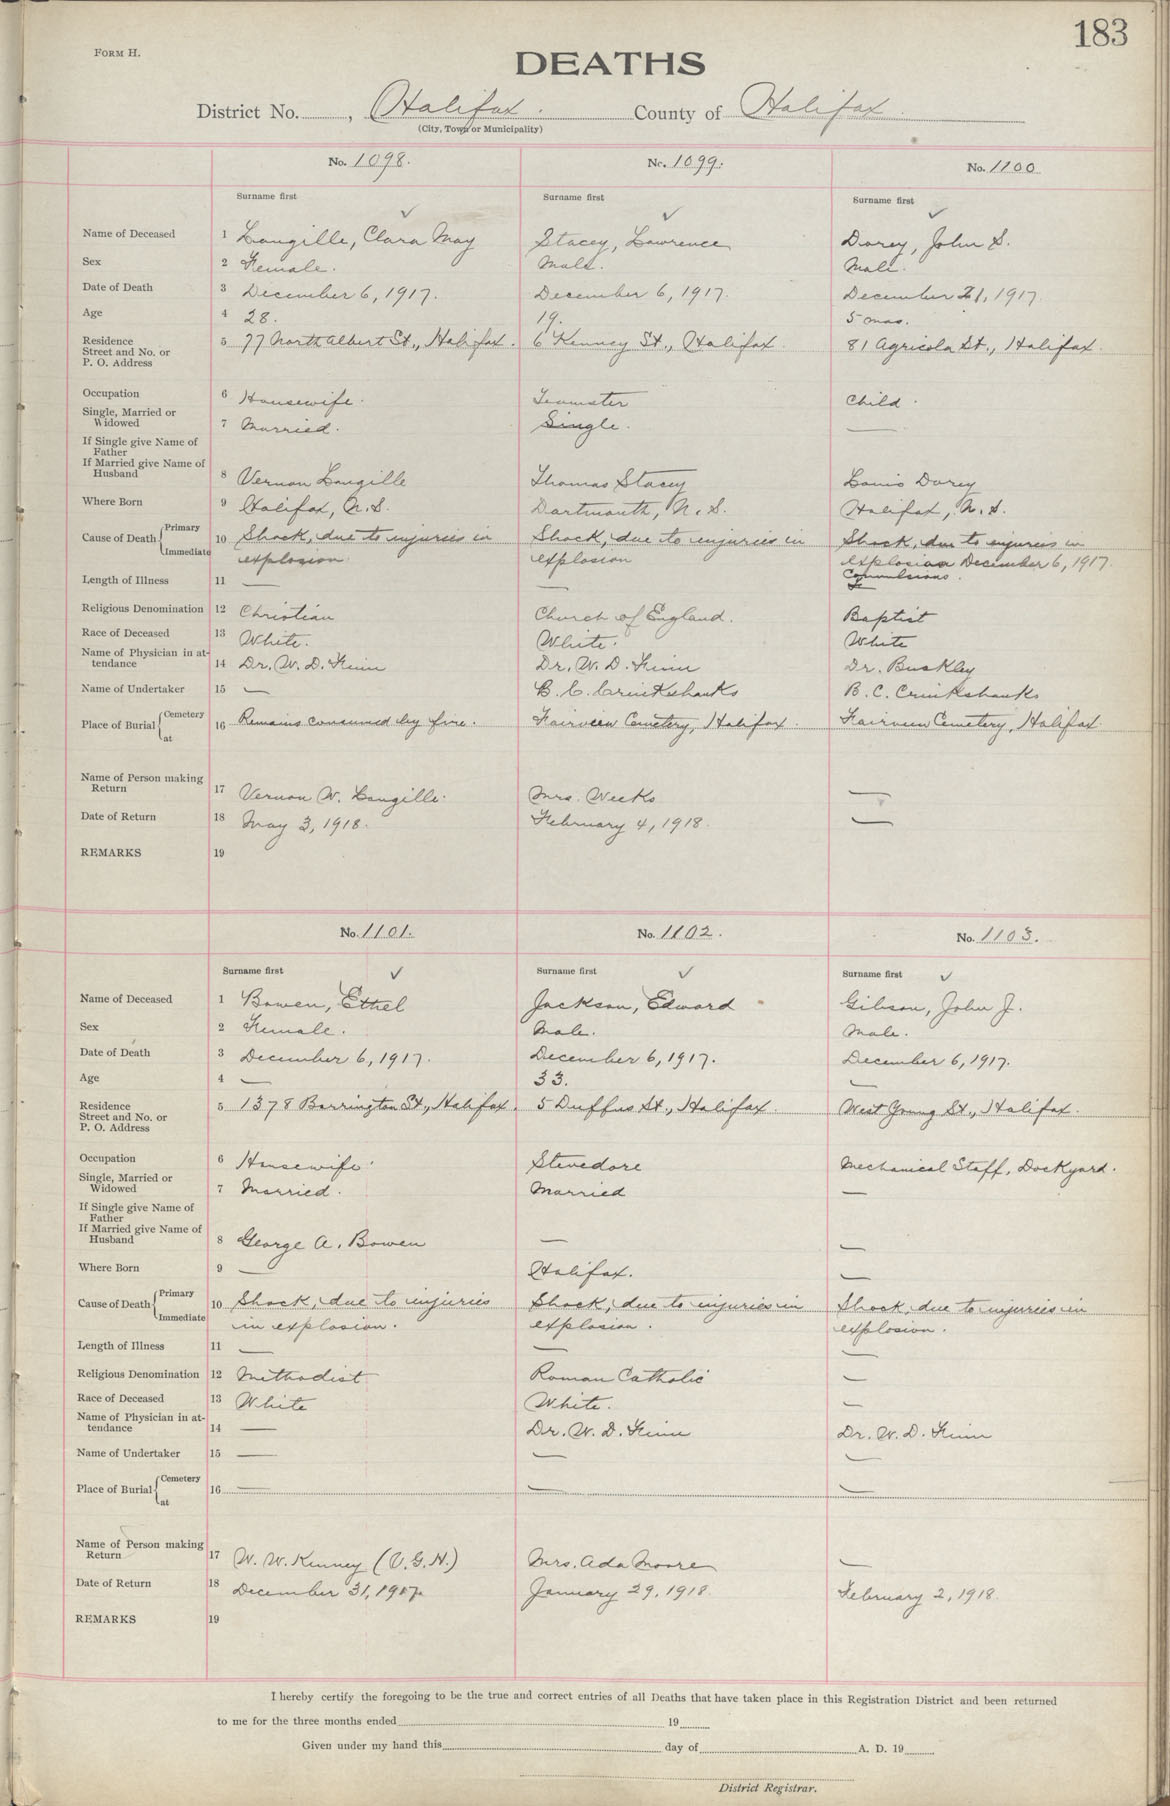 183
FORM H.
DEATHS
District No. , Halifax. County of Halifax
(City, Town or Municipality)
No. 1098. No. 1099. No. 1100
Surname first Surname first Surname first
Name of Deceased 1 Langille, Clara May Stacey, Lawrence Dorey, John S.
Sex 2 Female. Male. Male.
Date of Death 3 December 6, 1917. December 6, 1917. December 21, 1917
Age 4 28. 19. 5 mos.
Residence Street and No. or P. O. Address 5 77 North Albert St., Halifax. 6 Kenney St., Halifax 81 Agricola St., Halifax.
Occupation 6 Housewife. Teamster Child.
Single, Married or Widowed 7 Married. Single. —
If Single give Name of Father
If Married give Name of Husband 8 Vernon Langille Thomas Stacey Louis Dorey
Where Born 9 Halifax, N.S. Dartmouth, N.S. Halifax, N.S.
Cause of Death Primary Immediate 10 Shock, due to injuries in Shock, due to injuries in Shock, due to injuries in
explosion. explosion explosion December 6, 1917.
Convulsions.
Length of Illness 11 — —
Religious Denomination 12 Christian Church of England. Baptist
Race of Deceased 13 White. White. White
Name of Physician in attendance 14 Dr. W. D. Finn Dr. W. D. Finn Dr. Buckley
Name of Undertaker 15 — B. C. Cruikshanks B. C. Cruikshanks
Place of Burial Cemetery at 16 Remains consumed by fire. Fairview Cemetery, Halifax. Fairview Cemetery, Halifax
Name of Person making Return 17 Vernon W. Langille. Mrs. Weeks —
Date of Return 18 May 3, 1918. February 4, 1918. —
REMARKS 19
No. 1101. No. 1102. No. 1103.
Surname first Surname first Surname first
Name of Deceased 1 Bowen, Ethel Jackson, Edward Gibson, John J.
Sex 2 Female. Male. Male.
Date of Death 3 December 6, 1917. December 6, 1917. December 6, 1917.
Age 4 — 33. —
Residence Street and No. or P. O. Address 5 1378 Barrington St., Halifax. 5 Duffus St., Halifax. West Young St., Halifax.
Occupation 6 Housewife. Stevedore Mechanical Staff, Dockyard.
Single, Married or Widowed 7 Married. Married —
If Single give Name of Father
If Married give Name of Husband 8 George A. Bowen — —
Where Born 9 — Halifax. —
Cause of Death Primary Immediate 10 Shock, due to injuries Shock, due to injuries in Shock, due to injuries in
in explosion. explosion. explosion.
Length of Illness 11 — — —
Religious Denomination 12 Methodist Roman Catholic —
Race of Deceased 13 White White. —
Name of Physician in attendance 14 — Dr. W. D. Finn Dr. W. D. Finn
Name of Undertaker 15 — — —
Place of Burial Cemetery at 16 — — —
Name of Person making Return 17 W. W. Kenney (V.G.H.) Mrs. Ada Moore —
Date of Return 18 December 31, 1917. January 29, 1918. February 2, 1918.
REMARKS 19
I hereby certify the foregoing to be the true and correct entries of all Deaths that have taken place in this Registration District and been returned
to me for the three months ended 19
Given under my hand this day of A. D. 19
District Registrar.